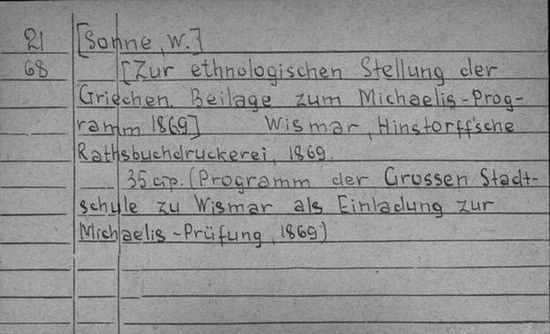 21 [Sonne, W.]
68 [Zur ethnologischen Stellung der
Griechen. Beilage zum Michaelis-Prog-
ramm 1869] Wismar, Hinstorff'sche
Rathsbuchdruckerei, 1869.
35 стр. (Programm der Grossen Stadt-
schule zu Wismar als Einladung zur
Michaelis-Prüfung, 1869)